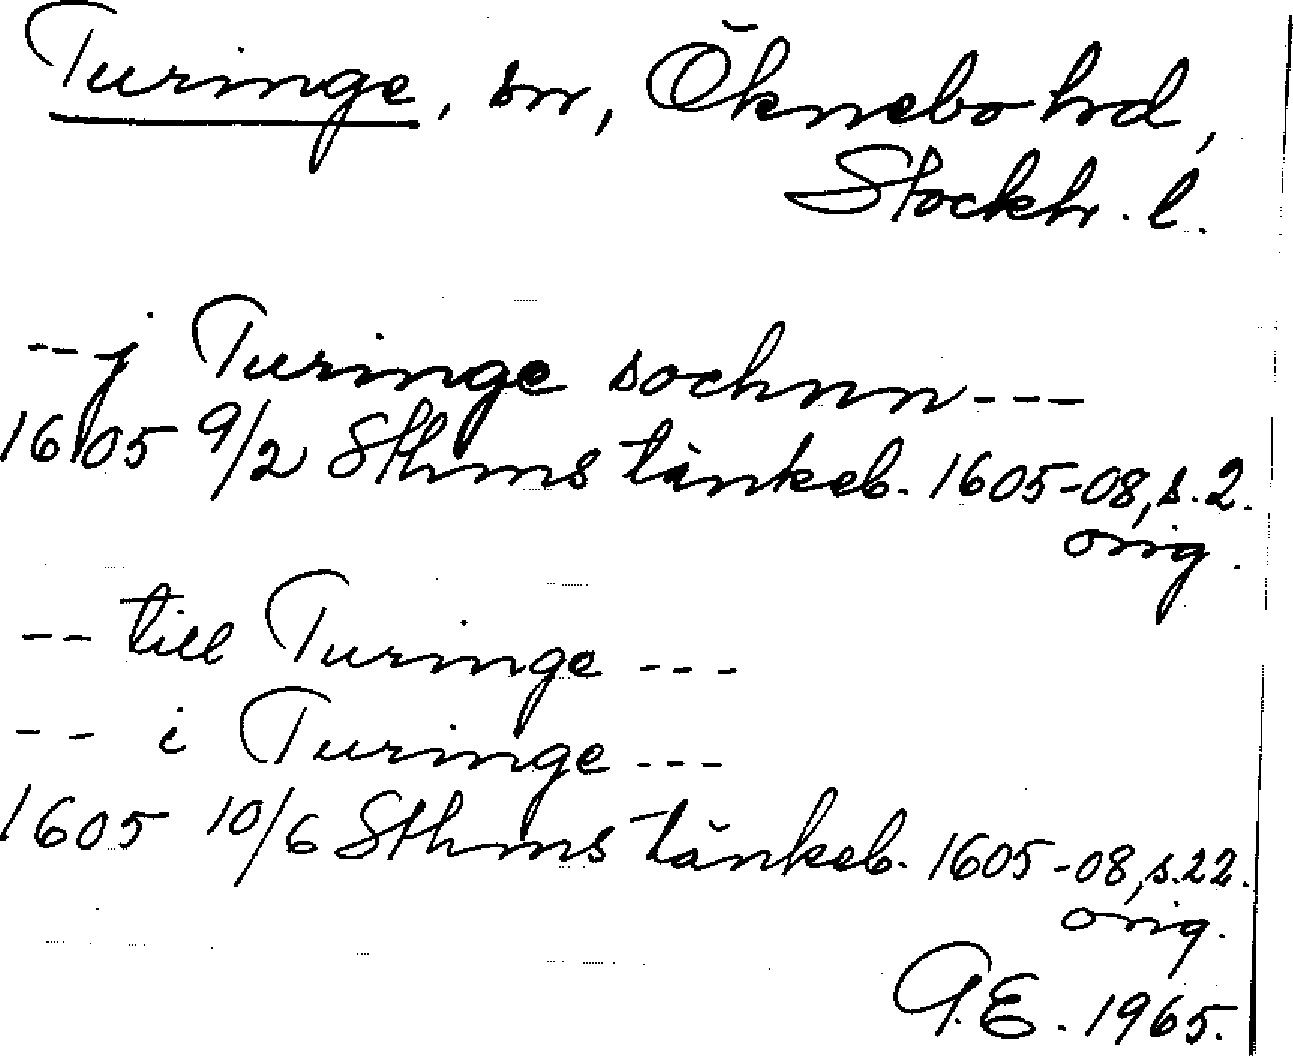 Turinge, sn, Öknebo hd,
Stockh. l.
-- j Turinge sochnn ---
1605 9/2 Sthms tänkeb. 1605-08, s. 2.
orig.
-- till Turinge ---
-- i Turinge ---
1605 10/6 Sthms tänkeb. 1605-08, s. 22.
orig.
G.E. 1965.